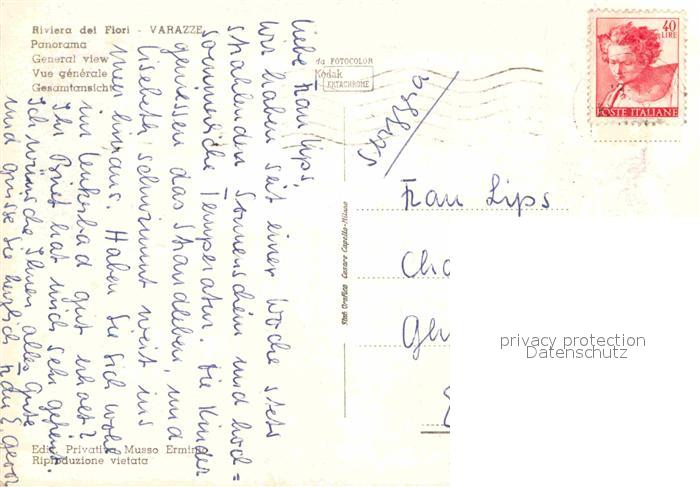 Riviera dei Fiori - VARAZZE
Panorama
General view
Vue générale
Gesamtansicht
da FOTOCOLOR
Kodak
EKTACHROME
40
LIRE
POSTE ITALIANE
Svizzera
Frau Lips
Stab. Grafico Cesare Capello - Milano
liebe Frau Lips,
wir haben seit einer Woche stets
strahlenden Sonnenschein und hoch=
sommerliche Temperatur. Die Kinder
geniessen das Strandleben, und
Lisebeth schwimmt weit ins
Meer hinaus. Haben Sie sich wohl
im Leukerbad gut erholt?
Ihr Brief hat mich sehr gefreut.
Ich wünsche Ihnen alles Gute
und grüsse Sie herzlich
Ediz. Privativa Musso Erminio
Riproduzione vietata
privacy protection
Datenschutz